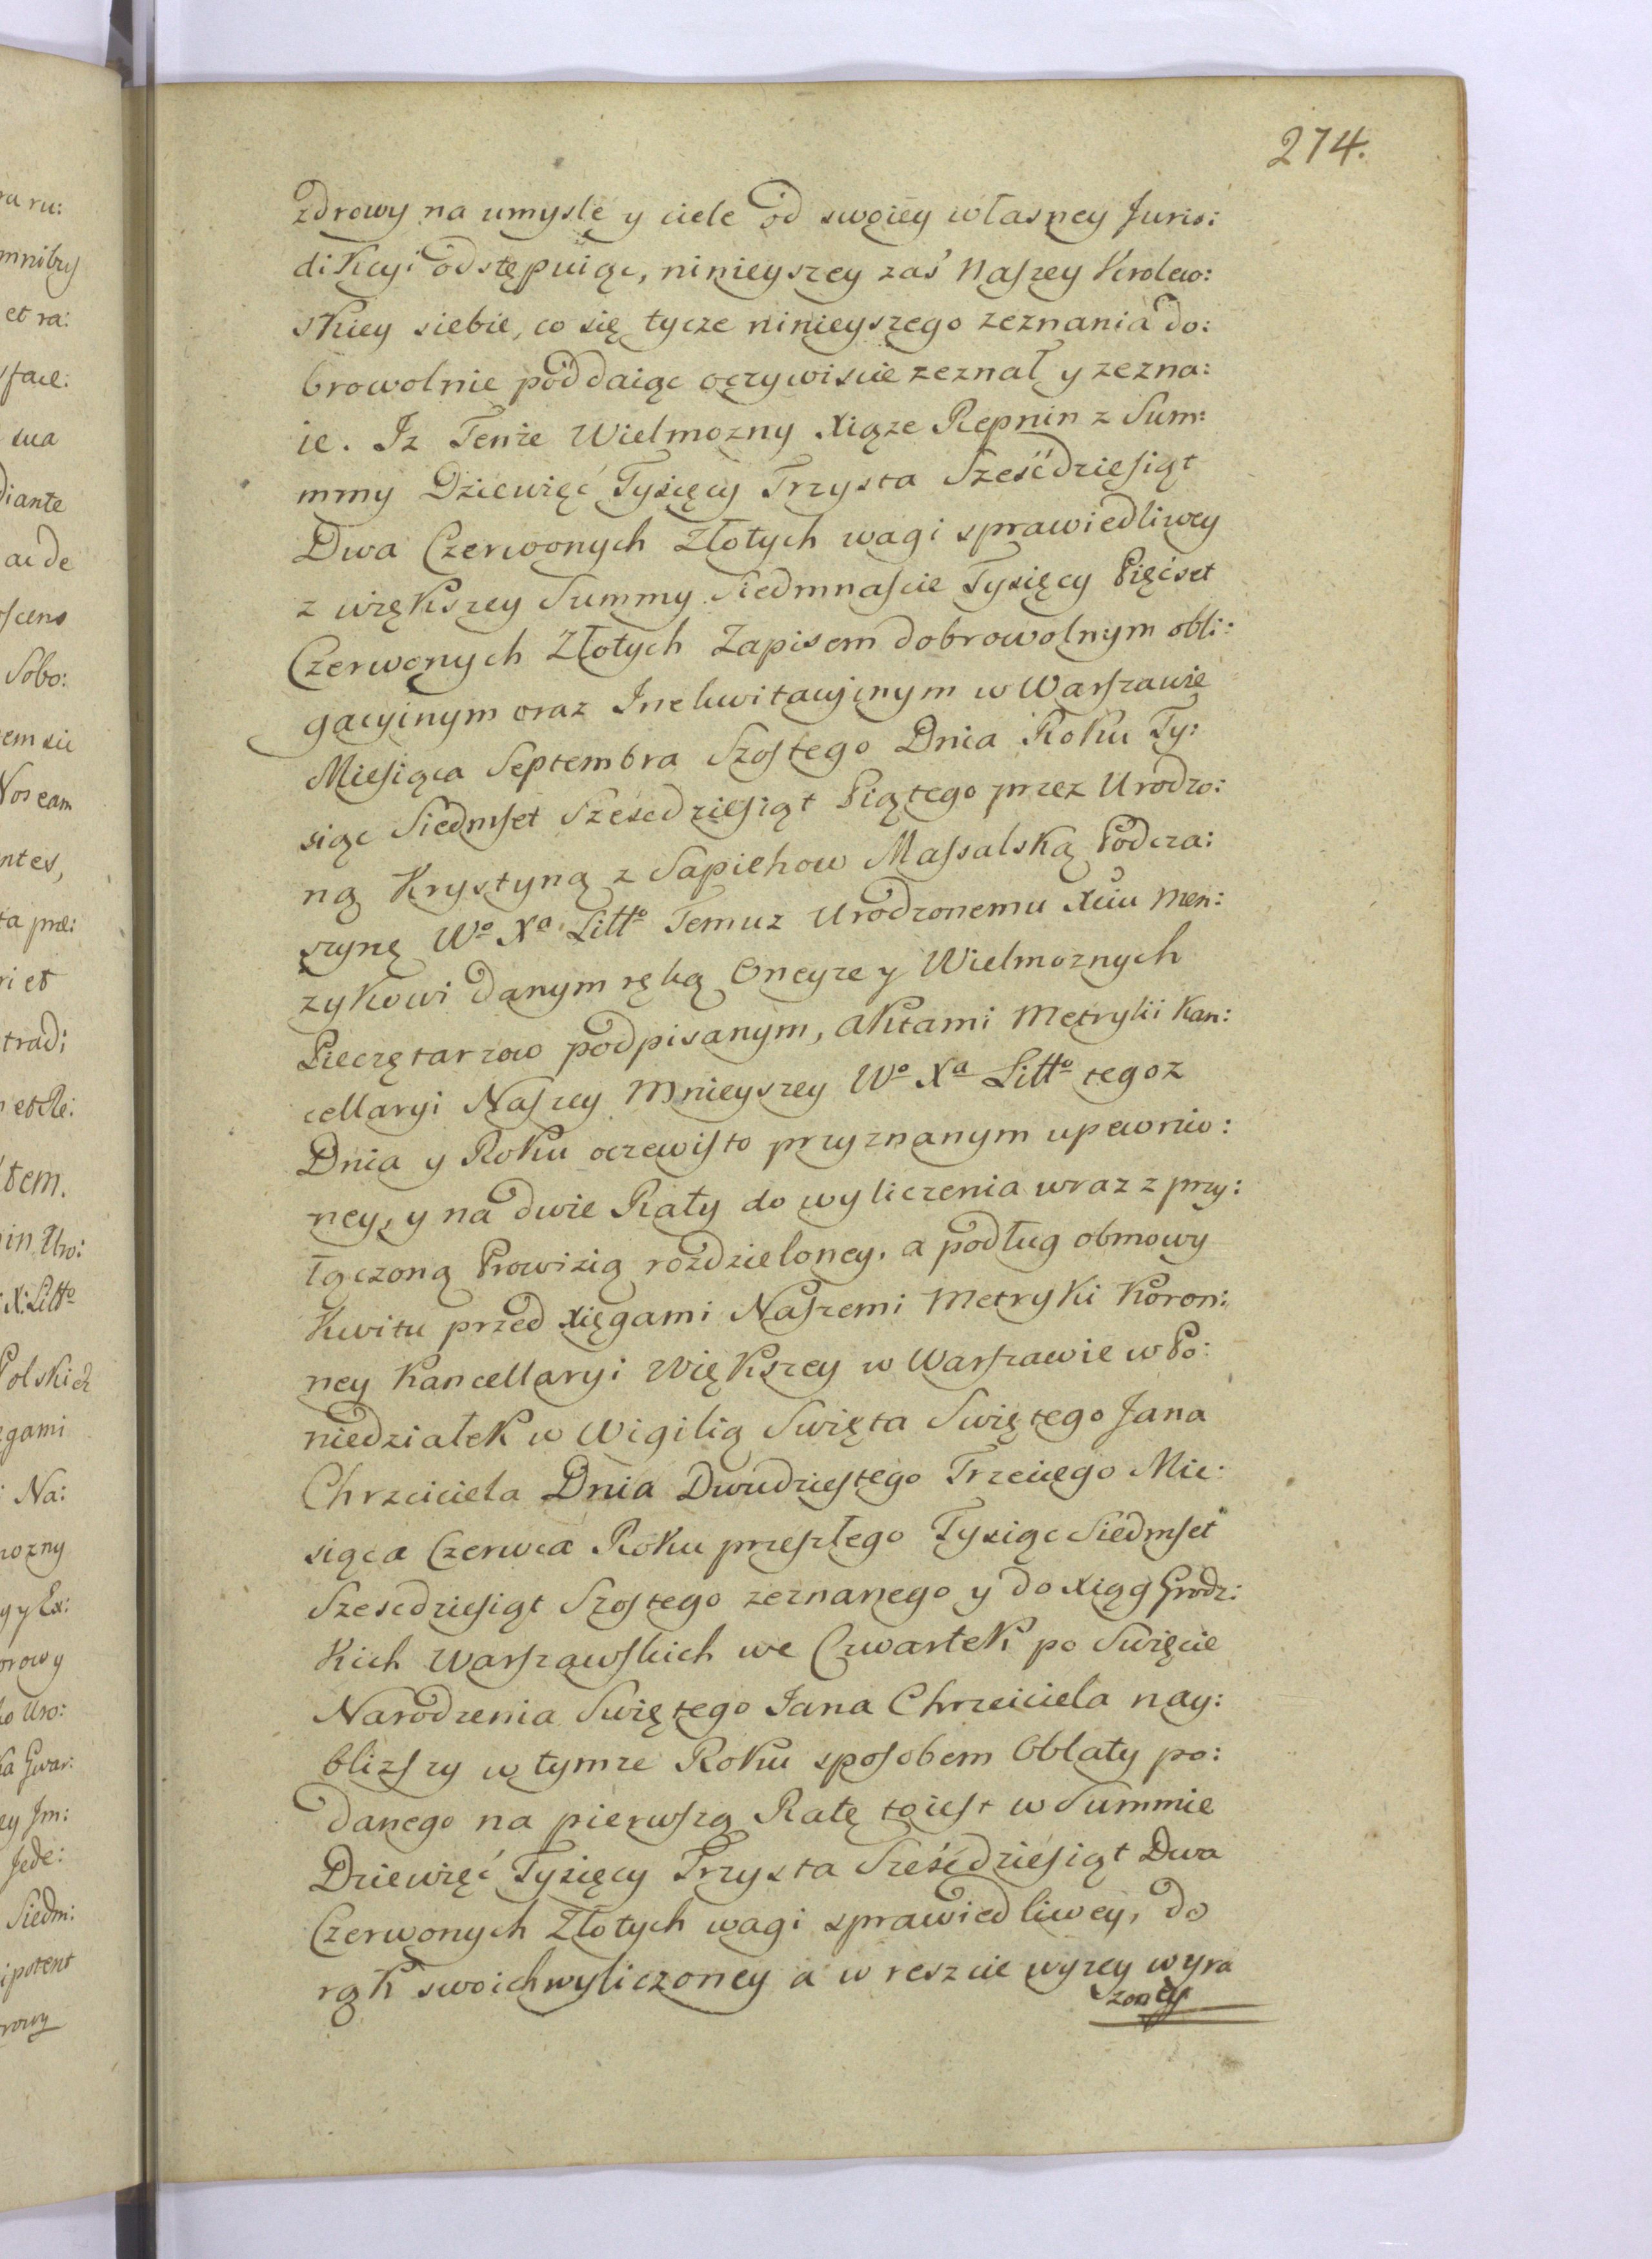 274.
zdrowy na umysle y ciele od swoiey własney Juris:
dikcyi odstępuiąc, ninieyszey zaś Naszey Krolew:
skiey siebie, co się tycze ninieyszego zeznania do:
browolnie poddaiąc oczywiscie zeznał y zezna:
ie. Iz Tenże Wielmozny Xiąze Repnin z Sum:
mmy Dziewięć Tysięcy Trzysta Sześćdziesiąt
Dwa Czerwonych Złotych wagi sprawiedliwey
z większey Summy Siedmnaście Tysięcy Pięćset
Czerwonych Złotych Zapisem dobrowolnym obli:
gacyinym oraz Inekwitacyinym w Warszawie
Miesiąca Septembra Szostego Dnia Roku Ty:
siąc Siedmset Sześcdziesiąt Piątego przez Urodzo:
ną Krystyną z Sapiehow Massalską Podcza:
szynę Wo Xa Litto Temuz Urodzonemu Xciu Men:
zykowi danym ręką Oneyze y Wielmoznych
Pieczętarzow podpisanym, aktami Metryki Kan:
cellaryi Naszey Mnieyszey Wo Xa Litto tegoz
Dnia y Roku oczewisto przyznanym upewnio:
ney, y na dwie Raty do wyliczenia wraz z przy:
łączoną Prowizią rozdzieloney, a podług obmowy
Kwitu przed Xięgami Naszemi Metryki Koron:
ney Kancellaryi Większey w Warszawie w Po:
niedziałek w Wigilią Swięta Swiętego Jana
Chrzciciela Dnia Dwudziestego Trzeciego Mie:
siąca Czerwca Roku przeszłego Tysiąc Siedmset
Szescdziesiąt Szostego zeznanego y do Xiąg Grodz:
kich Warszawskich we Czwartek po Swięcie
Narodzenia Swiętego Jana Chrzciciela nay:
blizszy w tymze Roku sposobem Oblaty po:
danego na pierwszą Ratę toiest w Summie
Dziewięć Tysięcy Trzysta Sześćdziesiąt Dwa
Czerwonych Złotych wagi sprawiedliwey, do
rąk swoich wyliczoney a w reszcie wyzey wyra
zoney